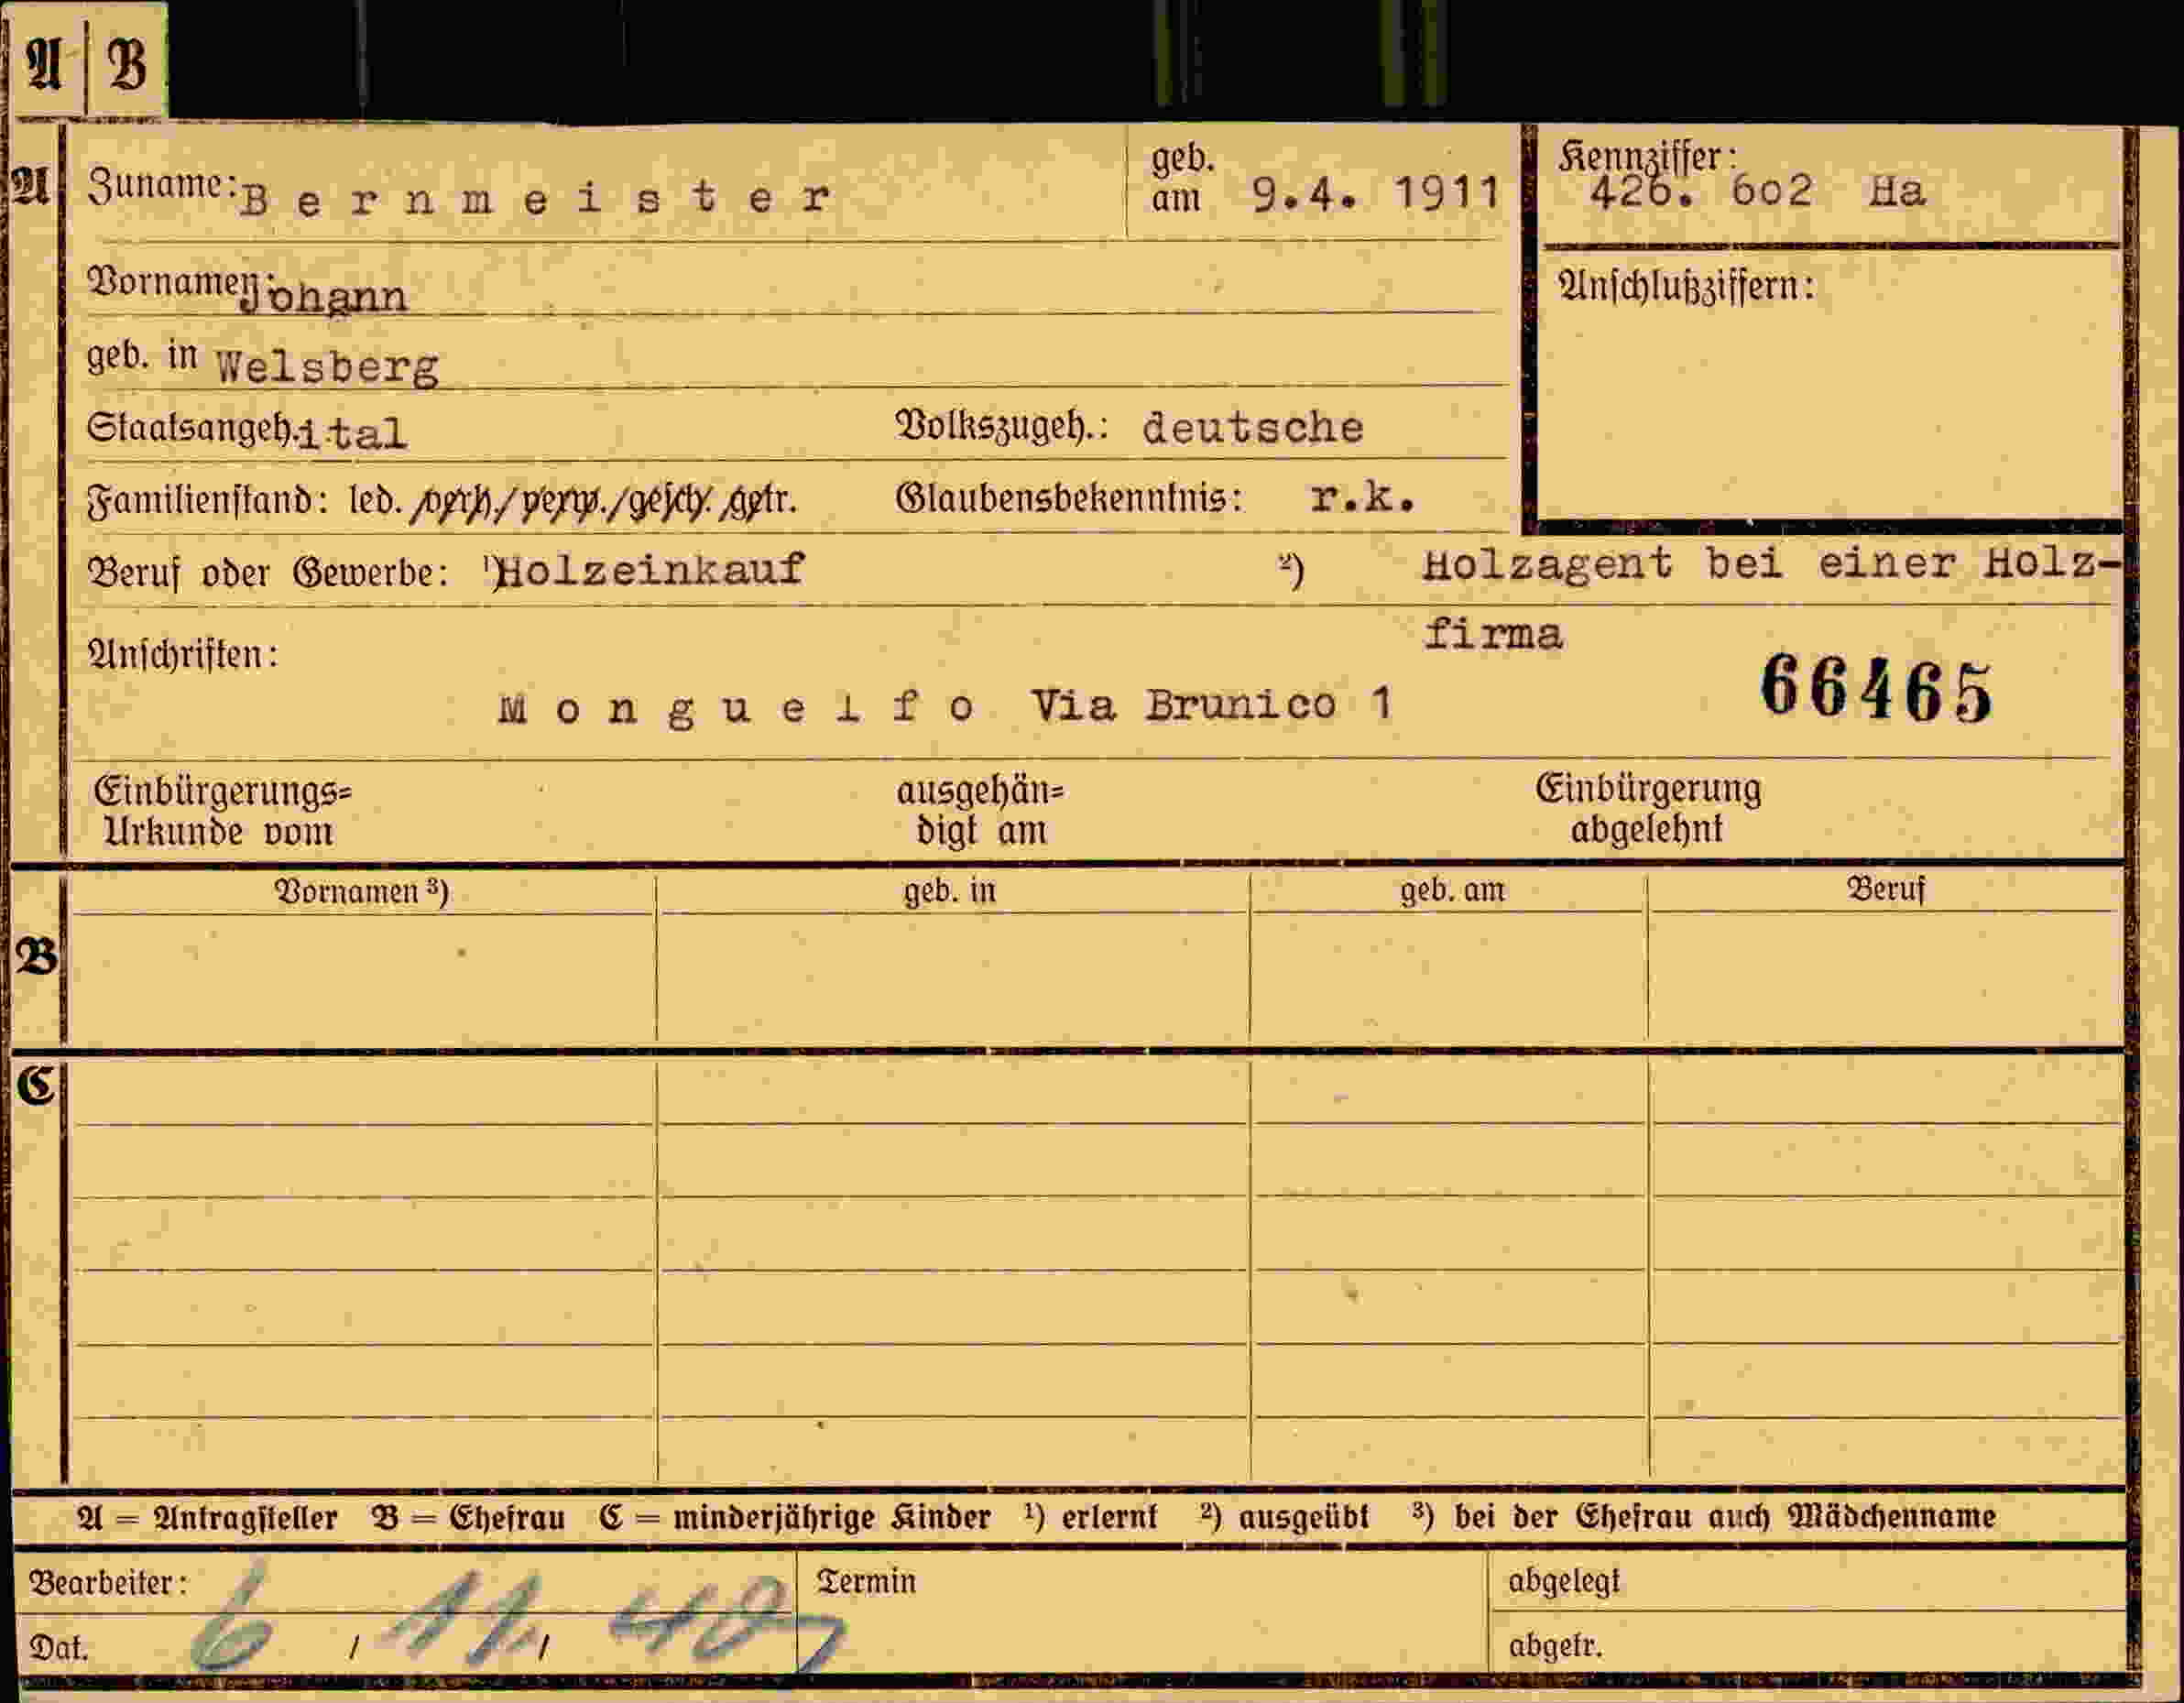 A | B
A
Zuname: Bernmeister
geb. am 9.4. 1911
Kennziffer: 426. 602 Ha
Vornamen: Johann
Anschlußziffern:
geb. in Welsberg
Staatsangeh. ital Volkszugeh.: deutsche
Familienstand: led. /verh./ verw./gesch. getr. Glaubensbekenntnis: r.k.
Beruf oder Gewerbe: ¹) Holzeinkauf ²) Holzagent bei einer Holz-
firma
Anschriften:
66465
Monguelfo Via Brunico 1
Einbürgerungs= ausgehän= Einbürgerung
Urkunde vom digt am abgelehnt
Vornamen ³) geb. in geb. am Beruf
B
C
A = Antragsteller B = Ehefrau C = minderjährige Kinder ¹) erlernt ²) ausgeübt ³) bei der Ehefrau auch Mädchenname
Bearbeiter: Termin abgelegt
Dat. 6 / 11. / 40 abgetr.